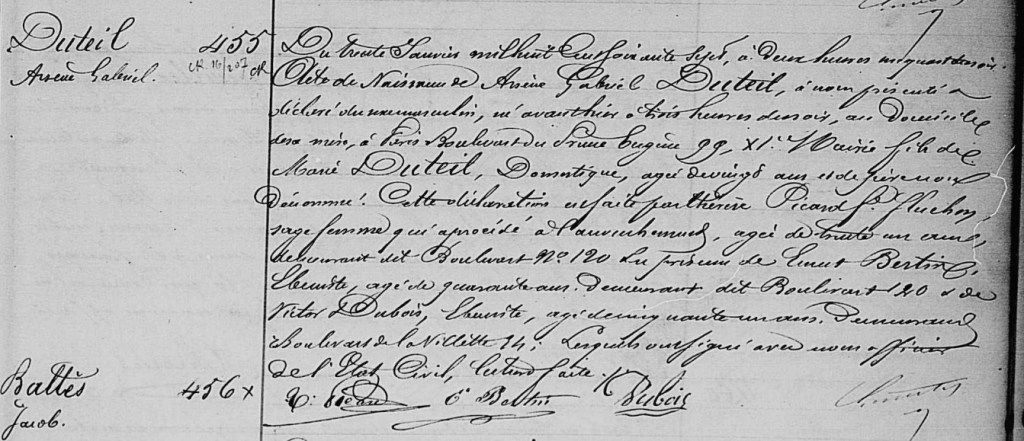 Duteil
Arsène Gabriel.
455
Du trente Janvier mil huit Cent soixante Sept, à deux heures un quart du soir.
Acte de Naissance de Arsène Gabriel Duteil, à nous présenté et
déclaré du sexe masculin, né avant hier à trois heures du soir, au Domicile
de sa mère, à Paris Boulevart du Prince Eugène 99, XIe Mairie fils de
Marie Duteil, Domestique, agée de vingt ans et de père non
Dénommé. Cette déclaration est faite par thérèse Picard fe. Fluchon,
sage femme qui a procédé à l'accouchement, agée de trente un ans,
demeurant dit Boulevart No. 120 En présence de Ernest Bertin,
Ebeniste, agé de quarante ans. Demeurant dit Boulevart 120 & de
Victor Dubois, Ebeniste, agé de cinquante un ans. Demeurant
Boulevart de la Villette 14; Lesquels ont signé avec nous officier
de l'Etat Civil, lecture faite.
T: Picard E Bertin Dubois
Battès
Jacob.
456 x